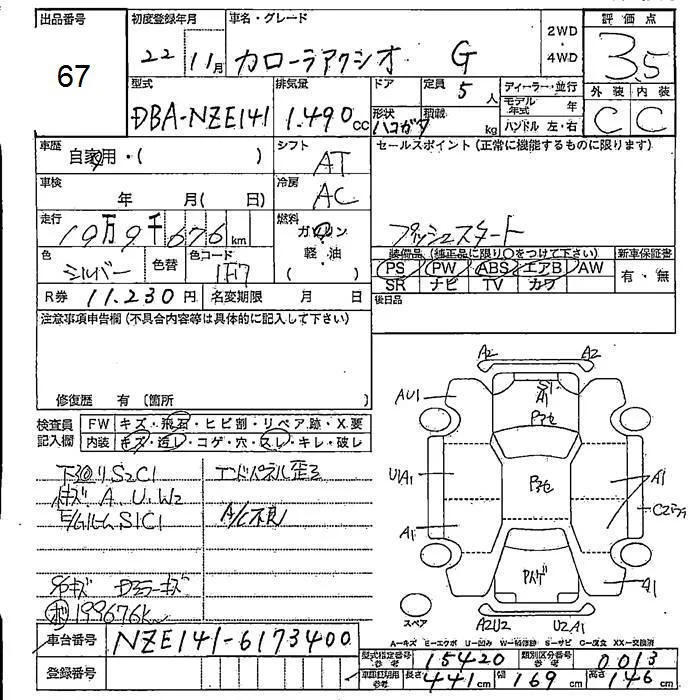 出品番号
67
初度登録年月
22 11月
車名・グレード
カローラアクシオ G
2WD
・
4WD
評価点
3.5
型式
DBA-NZE141
排気量
1.490 CC
ドア
形状
ハコガタ
定員
5 人
積載
kg
ディーラー・並行
モデル年式 年
ハンドル 左・右
外装 内装
C C
車歴
自家用・( )
シフト
AT
セールスポイント (正常に機能するものに限ります)
プッシュスタート
車検
年 月( 日)
冷房
AC
走行
19万9千676 km
燃料
ガソリン
軽・油
( )
色
シルバー
色替
色コード
1F7
装備品 (純正品に限り○をつけて下さい)
PS PW ABS エアB AW
SR ナビ TV カワ
新車保証書
有・無
R券 11.230 円
名変期限 月 日
後日品
注意事項申告欄 (不具合内容等は具体的に記入して下さい)
修復歴 有 〔箇所 〕
検査員
記入欄
FW キズ・飛石・ヒビ割・リペア跡・X.要
内装 キズ・汚レ・コゲ・穴・スレ・キレ・破レ
下廻リS2C1
エンドパネル歪ミ
キズ A.U.W2
S1C1
A/C不良
外キズ Dミラーキズ
199676K
A2 A2
AU1
S1
A1
Pアセ
U1A1
Pアセ
A1
A1
Pハゲ
A1
スペア
A2U2 U2A1
A−キズ E−エクボ U−凹み W−補修跡 S−サビ C−腐食 XX−交換済
車台番号
NZE141-6173400
登録番号
型式指定番号
参考
15420
類別区分番号
参考
0013
車庫証明用
参考
長さ 441 cm 幅 169 cm 高さ 146 cm